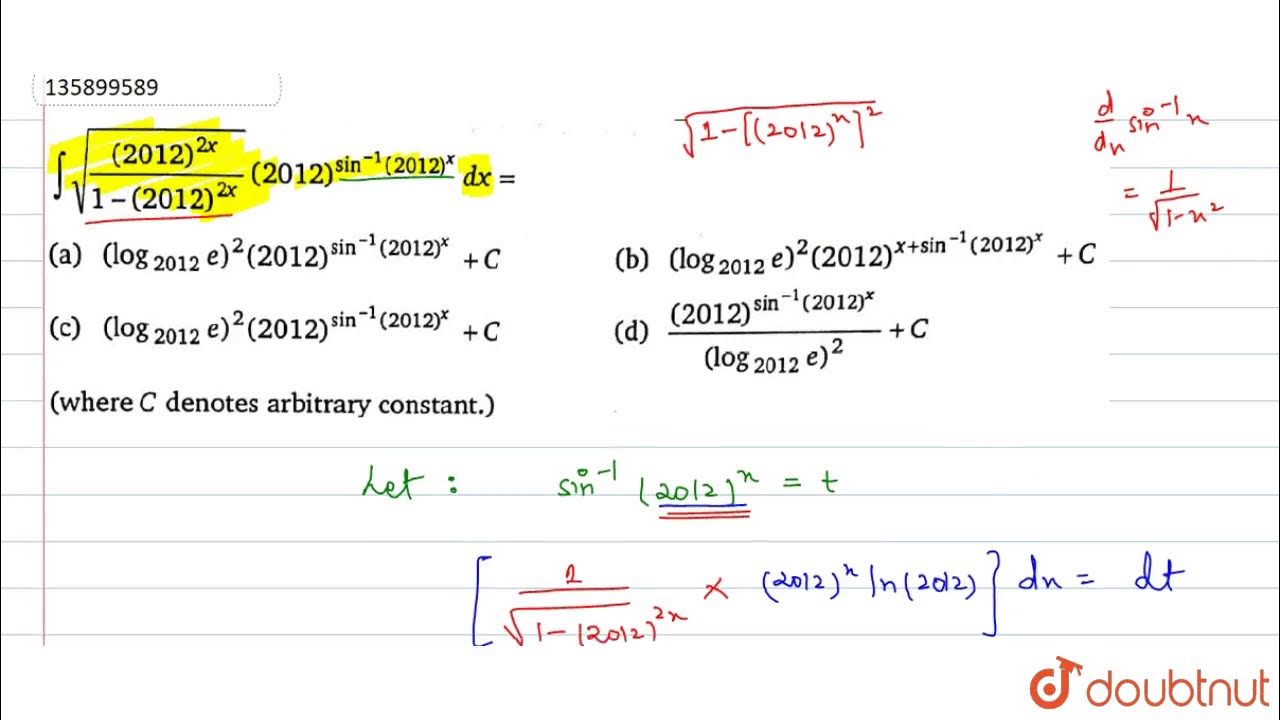 135899589
√(1-[(2012)^x]^2)
d/dx sin^-1 x
= 1/√(1-x^2)
∫√((2012)^{2x}/(1-(2012)^{2x})) (2012)^{sin^{-1}(2012)^x} dx =
(a) (log_{2012} e)^2 (2012)^{sin^{-1}(2012)^x} + C (b) (log_{2012} e)^2 (2012)^{x+sin^{-1}(2012)^x} + C
(c) (log_{2012} e)^2 (2012)^{sin^{-1}(2012)^x} + C (d) (2012)^{sin^{-1}(2012)^x}/(log_{2012} e)^2 + C
(where C denotes arbitrary constant.)
Let : sin^-1 (2012)^x = t
[1/√(1-(2012)^{2x}) × (2012)^x ln(2012)] dx = dt
doubtnut